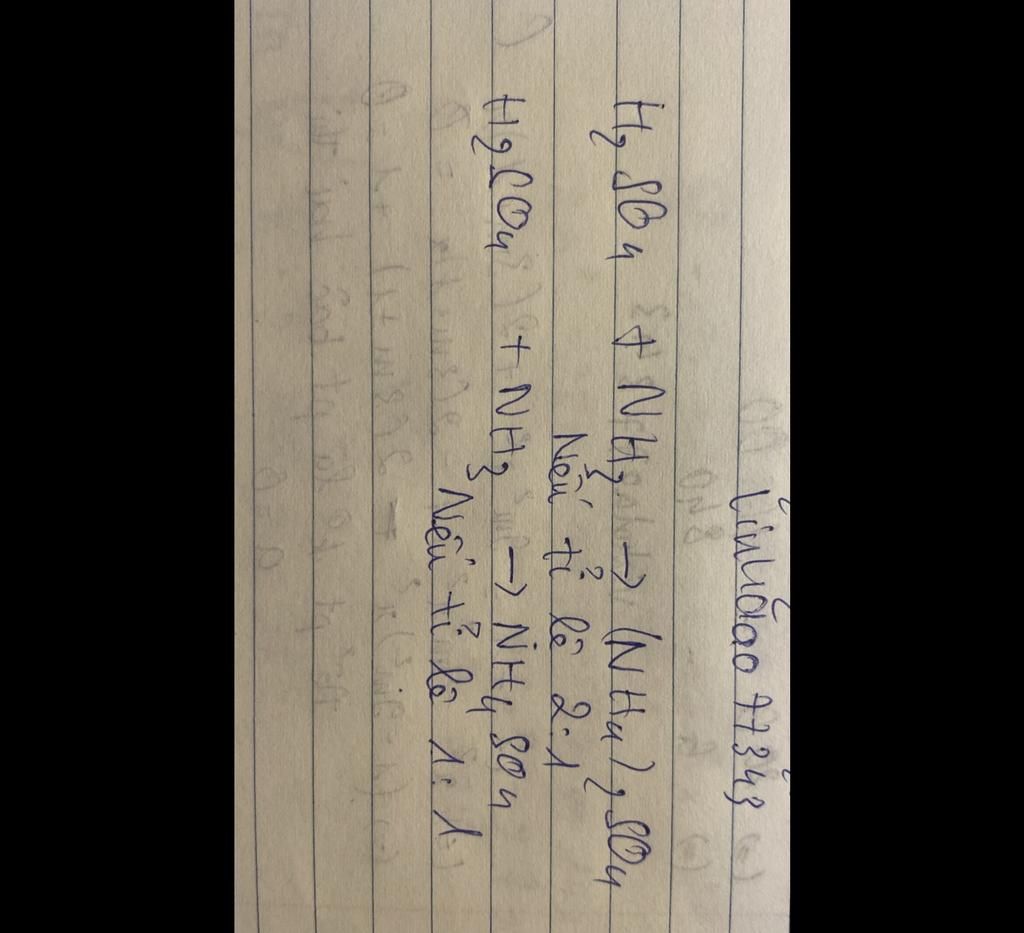 linhđào77343
H₂SO₄ + NH₃ → (NH₄)₂SO₄
Nếu tỉ lệ 2:1
H₂SO₄ + NH₃ → NH₄SO₄
Nếu tỉ lệ 1:1